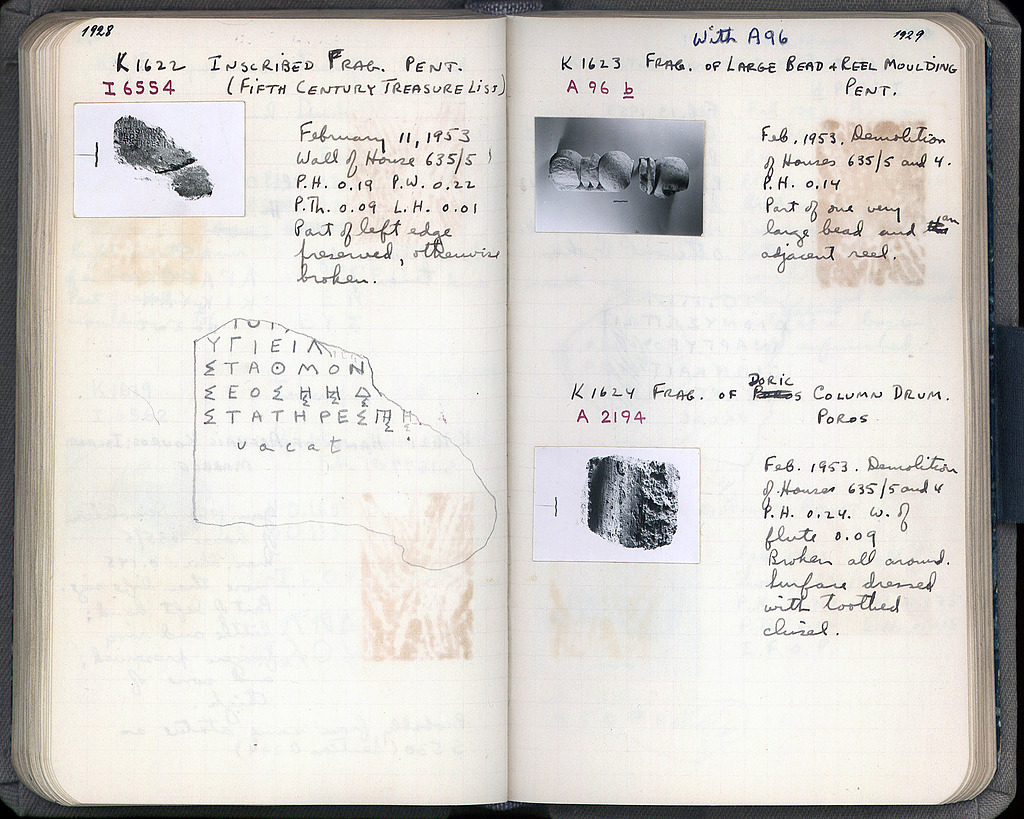 1928
K 1622 INSCRIBED FRAG. PENT.
I 6554 (FIFTH CENTURY TREASURE LISS)
February 11, 1953
Wall of House 635/5
P.H. 0.19 P.W. 0.22
P.Th. 0.09 L.H. 0.01
Part of left edge
preserved, otherwise
broken.
ΥΓΙΕΙΛ
ΣΤΑΘΜΟΝ
ΣΕΟΣ
ΣΤΑΤΗΡΕΣ
vacat
With A96
1929
K 1623 FRAG. OF LARGE BEAD + REEL MOULDING
A 96 b PENT.
Feb. 1953. Demolition
of Houses 635/5 and 4.
P.H. 0.14
Part of one very
large bead and an
adjacent reel.
K 1624 FRAG. OF DORIC COLUMN DRUM.
A 2194 POROS
Feb. 1953. Demolition
of Houses 635/5 and 4
P.H. 0.24. W. of
flute 0.09
Broken all around.
Surface dressed
with toothed
chisel.